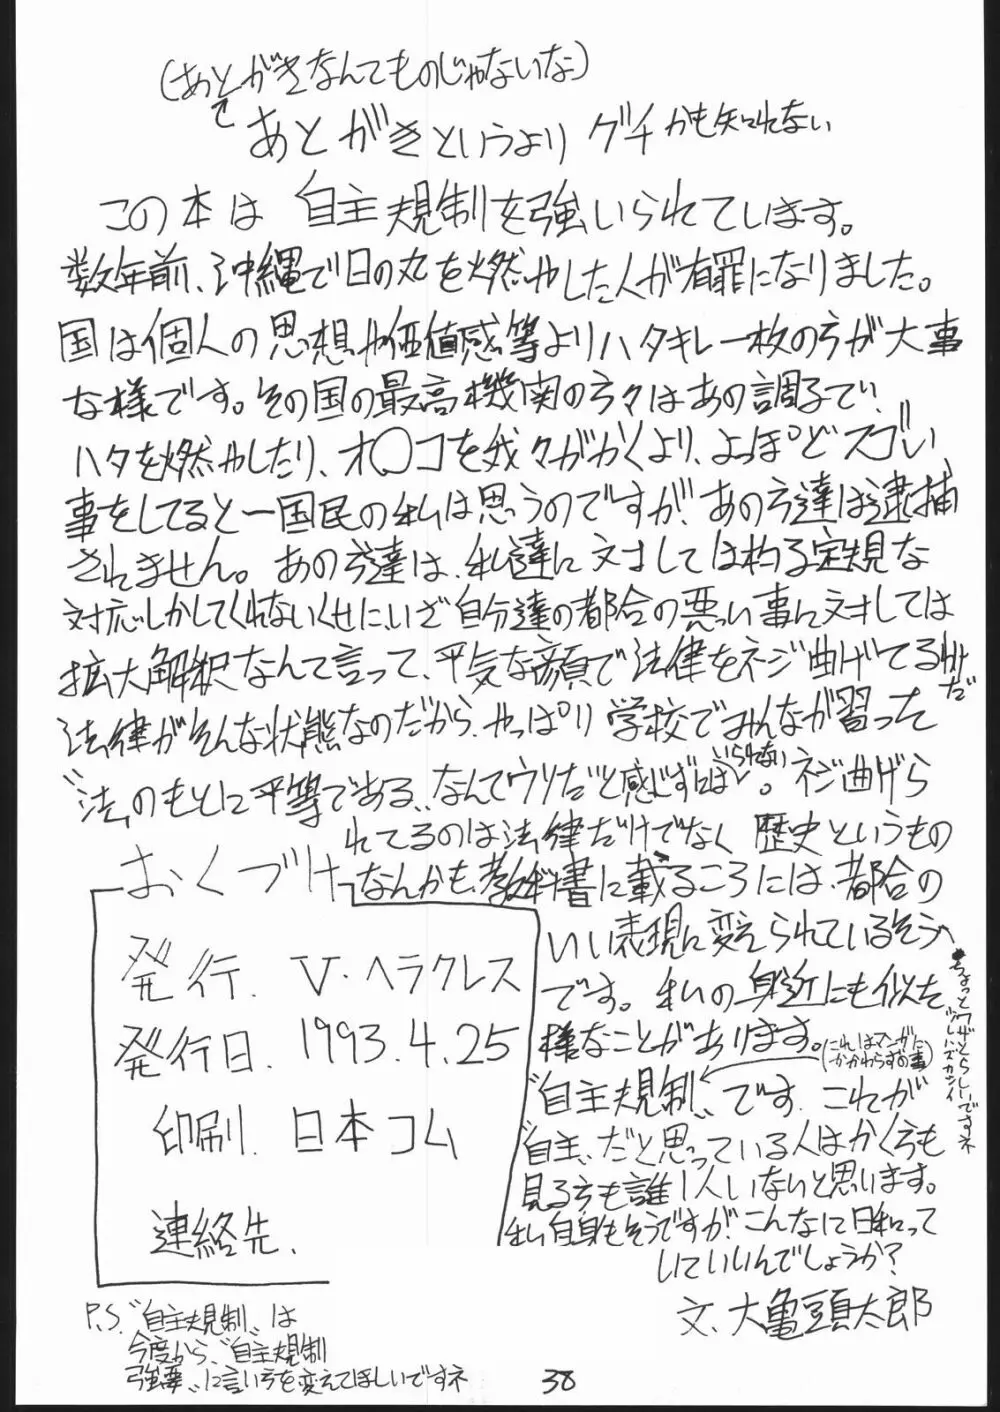 (あとがきなんてものじゃないな)
あとがきというよりグチかも知れない
この本は自主規制を強いられています。
数年前、沖縄で日の丸を燃やした人が有罪になりました。
国は個人の思想や価値感等よりハタキレ一枚の方が大事
な様です。その国の最高機関の方々はあの調子で、
ハタを燃やしたり、オ〇コを我々がかくより、よっぽどスゴい
事をしてると一国民の私は思うのですが、あの方達は逮捕
されません。あの方達は、私達に対しては杓子定規な
対応しかしてくれないくせに、いざ自分達の都合の悪い事に対しては
拡大解釈なんて言って、平気な顔で法律をネジ曲げてるわけだ
法律がそんな状態なのだから、やっぱり学校でみんなが習った
〝法のもとに平等である〟なんてウソだと感じずにはいられない。ネジ曲げら
れてるのは法律だけでなく歴史というもの
なんかも、教科書に載るころには、都合の
いい表現に変えられているそう
です。私の身近にも似た
様なことがあります。(これはマンガにかかわらずの事)
〝自主規制〟です。これが
〝自主〟だと思っている人はかく方も
見る方も誰1人いないと思います。
私自身もそうですが、こんなに日和って
していいんでしょうか?
文、大亀頭太郎
・ちょっとワザとらしいですネ
おくづけ
発行. V・ヘラクレス
発行日. 1993.4.25
印刷. 日本コム
連絡先.
P.S.〝自主規制〟は
今度から、〝自主規制
強要〟に言い方を変えてほしいですネ
38